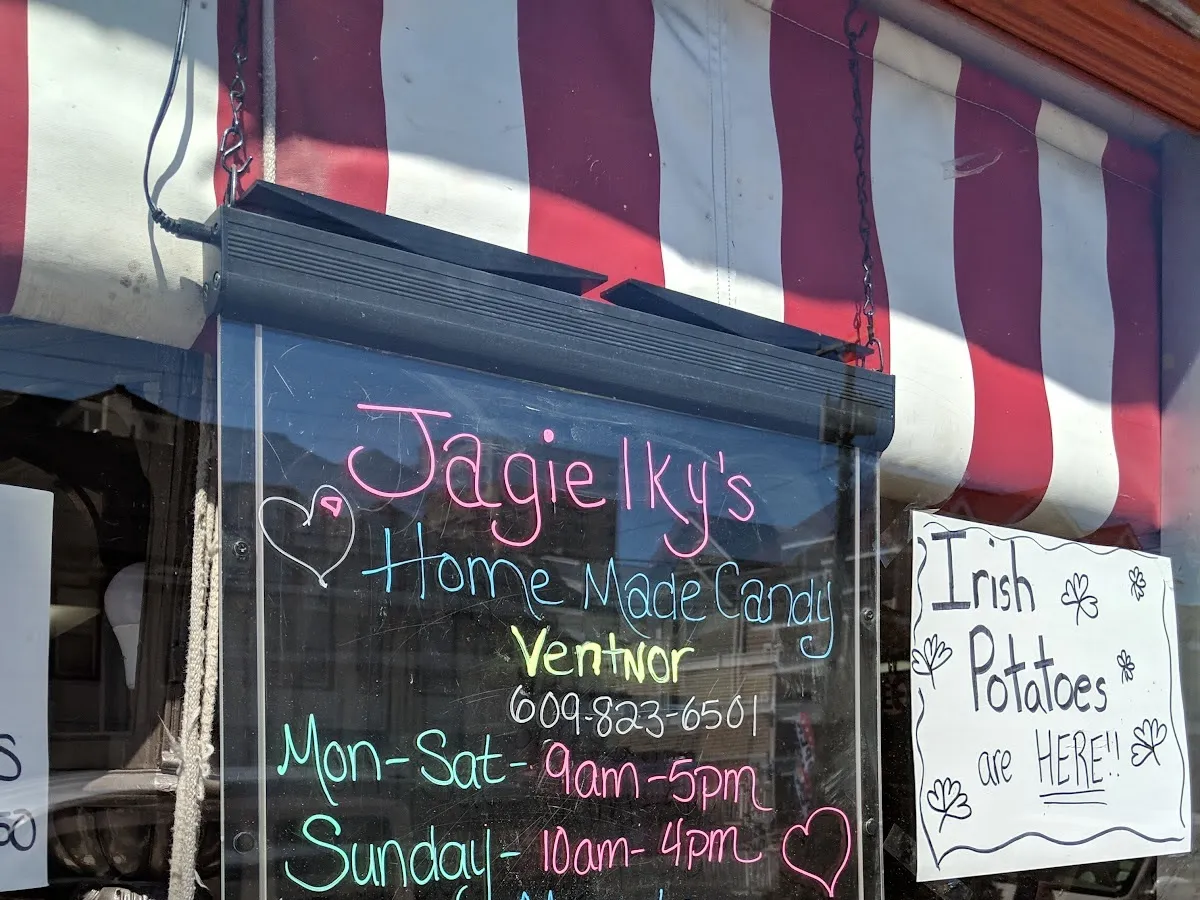 Jagielky's
Home Made Candy
Ventnor
609-823-6501
Mon-Sat- 9am-5pm
Sunday- 10am-4pm
Irish
Potatoes
are HERE!!